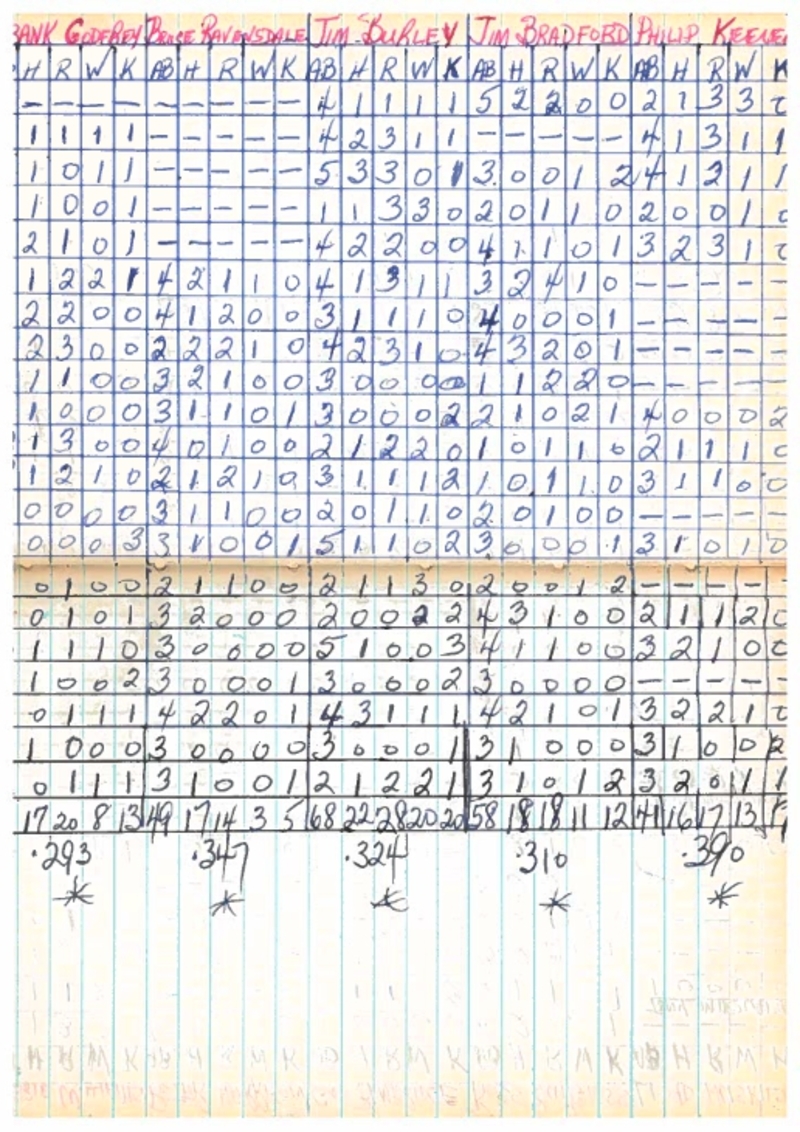 ANK GODFREY BRUCE RAVENSDALE JIM BURLEY JIM BRADFORD PHILIP KEENE
H R W K AB H R W K AB H R W K AB H R W K AB H R W K
- - - - - - - - - 4 1 1 1 1 5 2 2 0 0 2 1 3 3
1 1 1 1 - - - - - 4 2 3 1 1 - - - - - 4 1 3 1 1
1 0 1 1 - - - - - 5 3 3 0 1 3 0 0 1 2 4 1 2 1 1
1 0 0 1 - - - - - 1 1 3 3 0 2 0 1 1 0 2 0 0 1 0
2 1 0 1 - - - - - 4 2 2 0 0 4 1 1 0 1 3 2 3 1
1 2 2 1 4 2 1 1 0 4 1 3 1 1 3 2 4 1 0 - - - -
2 2 0 0 4 1 2 0 0 3 1 1 1 0 4 0 0 0 1 - - - -
2 3 0 0 2 2 2 1 0 4 2 3 1 0 4 3 2 0 1 - - - - -
1 1 0 0 3 2 1 0 0 3 0 0 0 0 1 1 2 2 0 - - - - -
1 0 0 0 3 1 1 0 1 3 0 0 0 2 2 1 0 2 1 4 0 0 0 2
1 3 0 0 4 0 1 0 0 2 1 2 2 0 1 0 1 1 0 2 1 1 1 0
1 2 1 0 2 1 2 1 0 3 1 1 1 2 1 0 1 1 0 3 1 1 0 0
0 0 0 0 3 1 1 0 0 2 0 1 1 0 2 0 1 0 0 - - - - -
0 0 0 3 3 1 0 0 1 5 1 1 0 2 3 0 0 0 1 3 1 0 1 0
0 1 0 0 2 1 1 0 0 2 1 1 3 0 2 0 0 1 2 - - - - -
0 1 0 1 3 2 0 0 0 2 0 0 2 2 4 3 1 0 0 2 1 1 2 0
1 1 1 0 3 0 0 0 0 5 1 0 0 3 4 1 1 0 0 3 2 1 0 0
1 0 0 2 3 0 0 0 1 3 0 0 0 2 3 0 0 0 0 - - - - -
0 1 1 1 4 2 2 0 1 4 3 1 1 1 4 2 1 0 1 3 2 2 1
1 0 0 0 3 0 0 0 0 3 0 0 0 1 3 1 0 0 0 3 1 0 0 2
0 1 1 1 3 1 0 0 1 2 1 2 2 1 3 1 0 1 2 3 2 0 1 1
17 20 8 13 49 17 14 3 5 68 22 28 20 20 58 18 18 11 12 41 16 17 13
.293 .347 .324 .310 .390
* * * * *